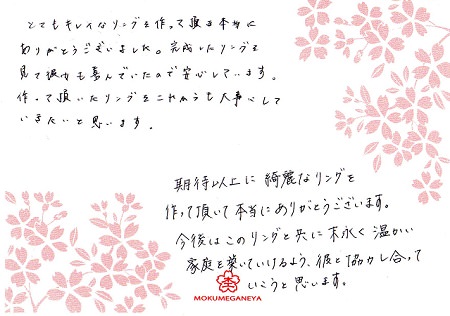 とてもキレイなリングを作って頂き本当に
ありがとうございました。完成したリングを
見て彼女も喜んでいたので安心しています。
作って頂いたリングをこれからも大事にして
いきたいと思います。
期待以上に綺麗なリングを
作って頂いて本当にありがとうございます。
今後はこのリングと共に末永く温かい
家庭を築いていけるよう、彼と協力し合って
いこうと思います。
MOKUMEGANEYA